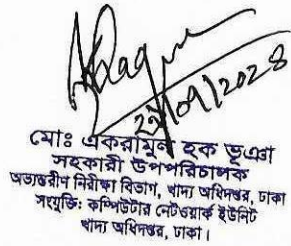 ২৭/০৭/২০২৪
মোঃ একরামুল হক ভূঞা
সহকারী উপপরিচালক
অভ্যন্তরীণ নিরীক্ষা বিভাগ, খাদ্য অধিদপ্তর, ঢাকা
সংযুক্তি: কম্পিউটার নেটওয়ার্ক ইউনিট
খাদ্য অধিদপ্তর, ঢাকা।